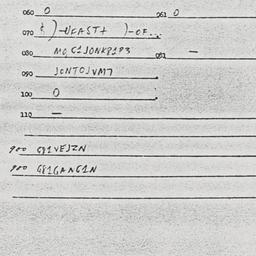 060 0 061 0
070
080 MO, C1JONK81P3 081 —
090 JONTOJVM7
100 0
110 —
900 G81VEJZN
900 G81GAAG1N